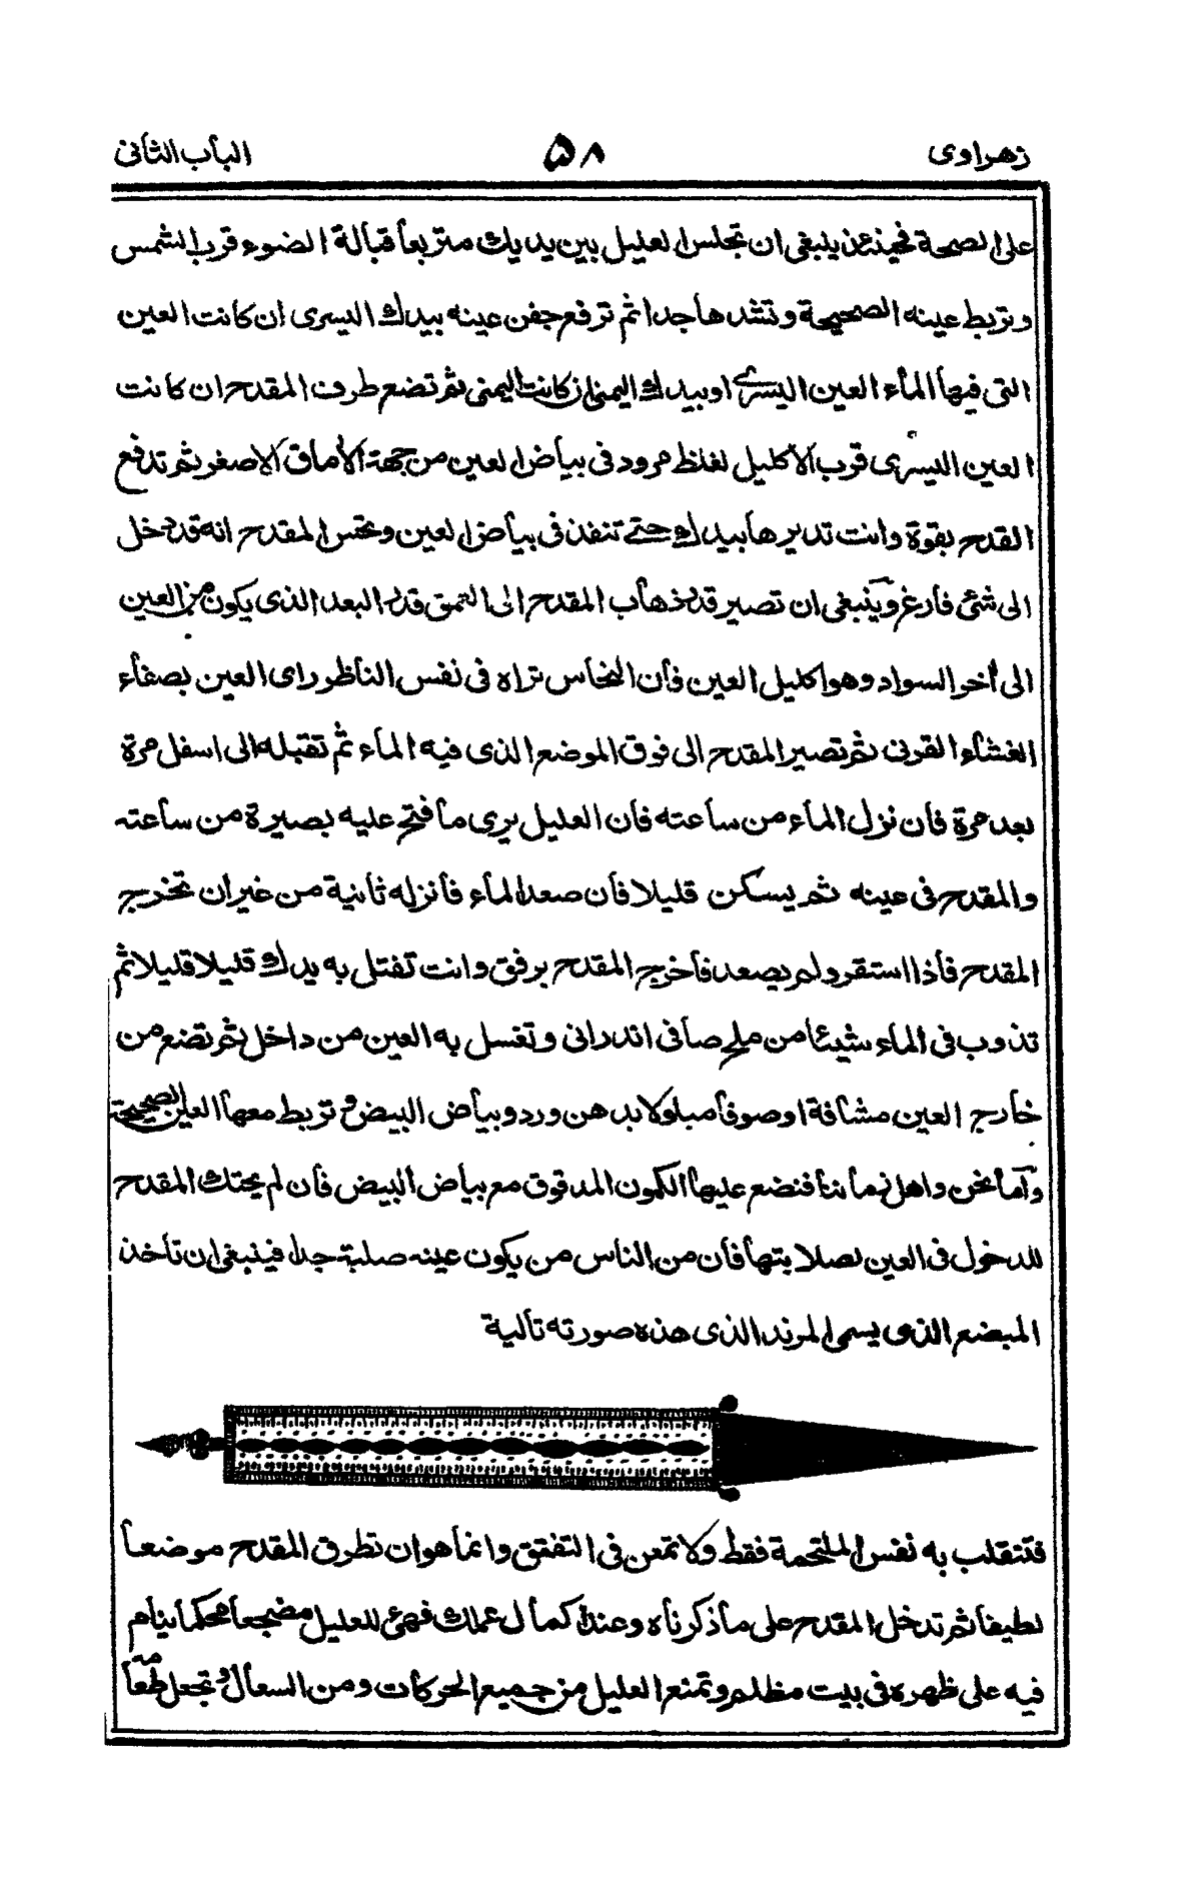 زهراوى ٥٨ البأب الثأنى
على الصحة فحينئذ ينبغى ان تجلس العليل بين يديك متربعأ قبألة الضوء قرب الشمس
وتربط عينه الصحيحة وتشدهأ جدا ثم ترفع جفن عينه بيدك اليسرى ان كانت العين
التى فيهأ المأء العين اليسرى او بيدك اليمنى ان كانت اليمنى ثم تضع طرف المقدح ان كانت
العين اليسرى قرب الأكليل لغلظ مرود فى بيأض العين من جهة الأماق الاصغر ثم تدفع
القدح بقوة وانت تديرهأ بيدك حتى تنفذ فى بيأض العين وتحس المقدح انه قد دخل
الى شئ فأرغ وينبغى ان تصير قدر ذهأب المقدح الى العمق قدر البعد الذى يكون من العين
الى أخر السواد وهو اكليل العين فأن النحأس تراه فى نفس النأظر راى العين بصفأء
الغشأء القرنى ثم تصير المقدح الى فوق الموضع الذى فيه المأء ثم تقبله الى اسفل مرة
بعد مرة فان نزل المأء من سأعته فان العليل يرى مأ فتح عليه بصيرة من سأعته
والمقدح فى عينه ثم يسكن قليلا فأن صعد المأء فأنزله ثأنية من غير ان تخرج
المقدح فأذا استقر ولم يصعد فأخرج المقدح برفق وانت تفتل به يدك قليلا قليلا ثم
تذوب فى المأء شيئا من ملح صأفى اندرانى وتغسل به العين من داخل ثم تضع من
خأرج العين مشأفة او صوفأ مبلولا بدهن ورد وبيأض البيض وتربط معهأ العين الصحيحة
وأمأ نحن واهل زمأننأ فنضع عليهأ الكمون المدقوق مع بيأض البيض فأن لم يحتك المقدح
للدخول فى العين لصلابتهأ فأن من الناس من يكون عينه صلبة جدا فينبغى ان تأخذ
المبضع الذى يسمى المرند الذى هذه صورته تألية
فتنقلب به نفس الملتحمة فقط ولا تمعن فى التفتق وانمأ هو ان تطرق المقدح موضعأ
لطيفأ ثم تدخل المقدح على مأ ذكرنأه وعند كمأل عملك فهيئ للعليل مضجعأ محكمأ ينأم
فيه على ظهره فى بيت مظلم وتمنع العليل من جميع الحركأت ومن السعأل وتجعل طعمأ